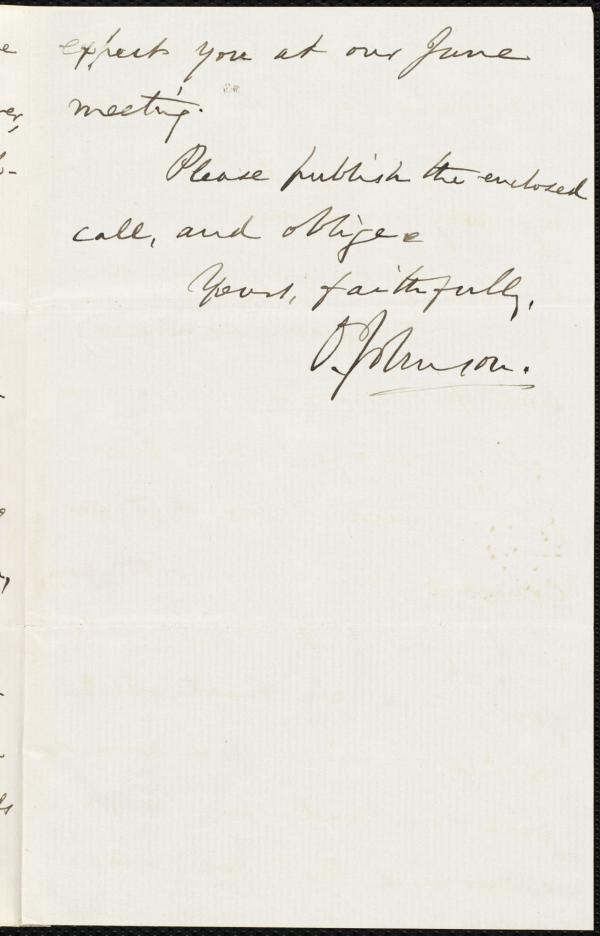 expect you at our June
meeting.
Please publish the enclosed
call, and oblige
Yours, faithfully,
O. Johnson.